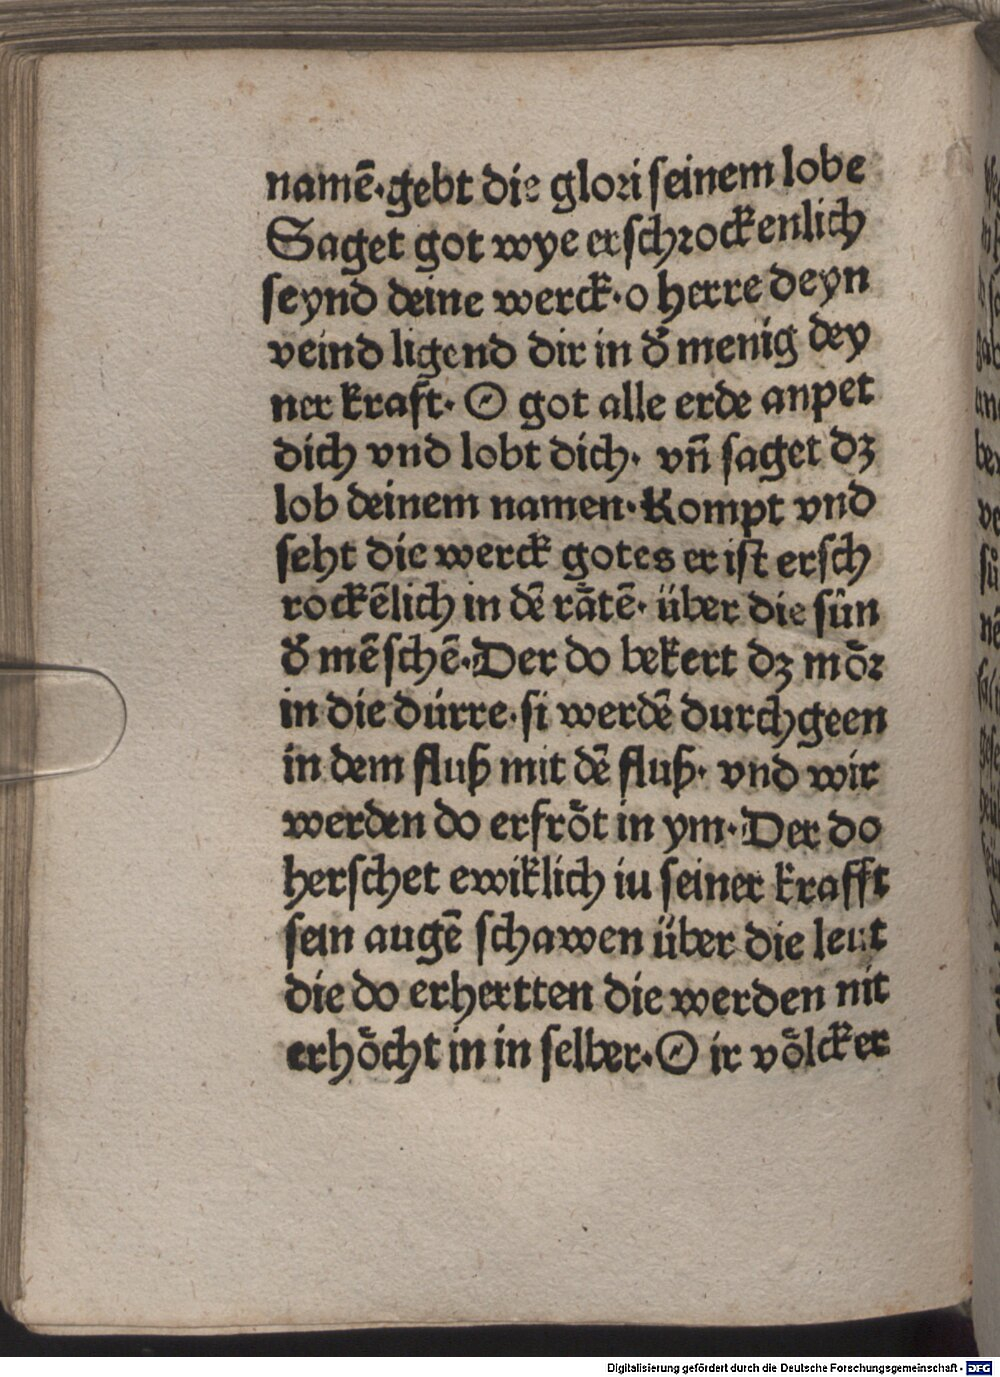 namē·gebt die glori ſeinem lobe
Saget got wye erſchrockenlich
ſeynd deine werck·o herre deyn
veind ligend dir in d̕ menig dey
ner kraft· O got alle erde anpet
dich vnd lobt dich· vn̄ ſaget dꝫ
lob deinem namen·Kompt vnd
ſeht die werck gotes er iſt erſch
rockēlich in dē rᷠåtē· über die ſün
d̕ mēſchē·Der do bekert dꝫ mȫr
in die dúrre·ſi werdē durchgeen
in dem fluß mit dē fluß· vnd wir
werden do erfröt in ym·Der do
herſchet ewiklich iu ſeiner krafft
ſein augē ſchawen über die leut
die do erhertten die werden nit
erhöcht in in ſelber·O ir völcker
Digitalisierung gefördert durch die Deutsche Forschungsgemeinschaft - DFG